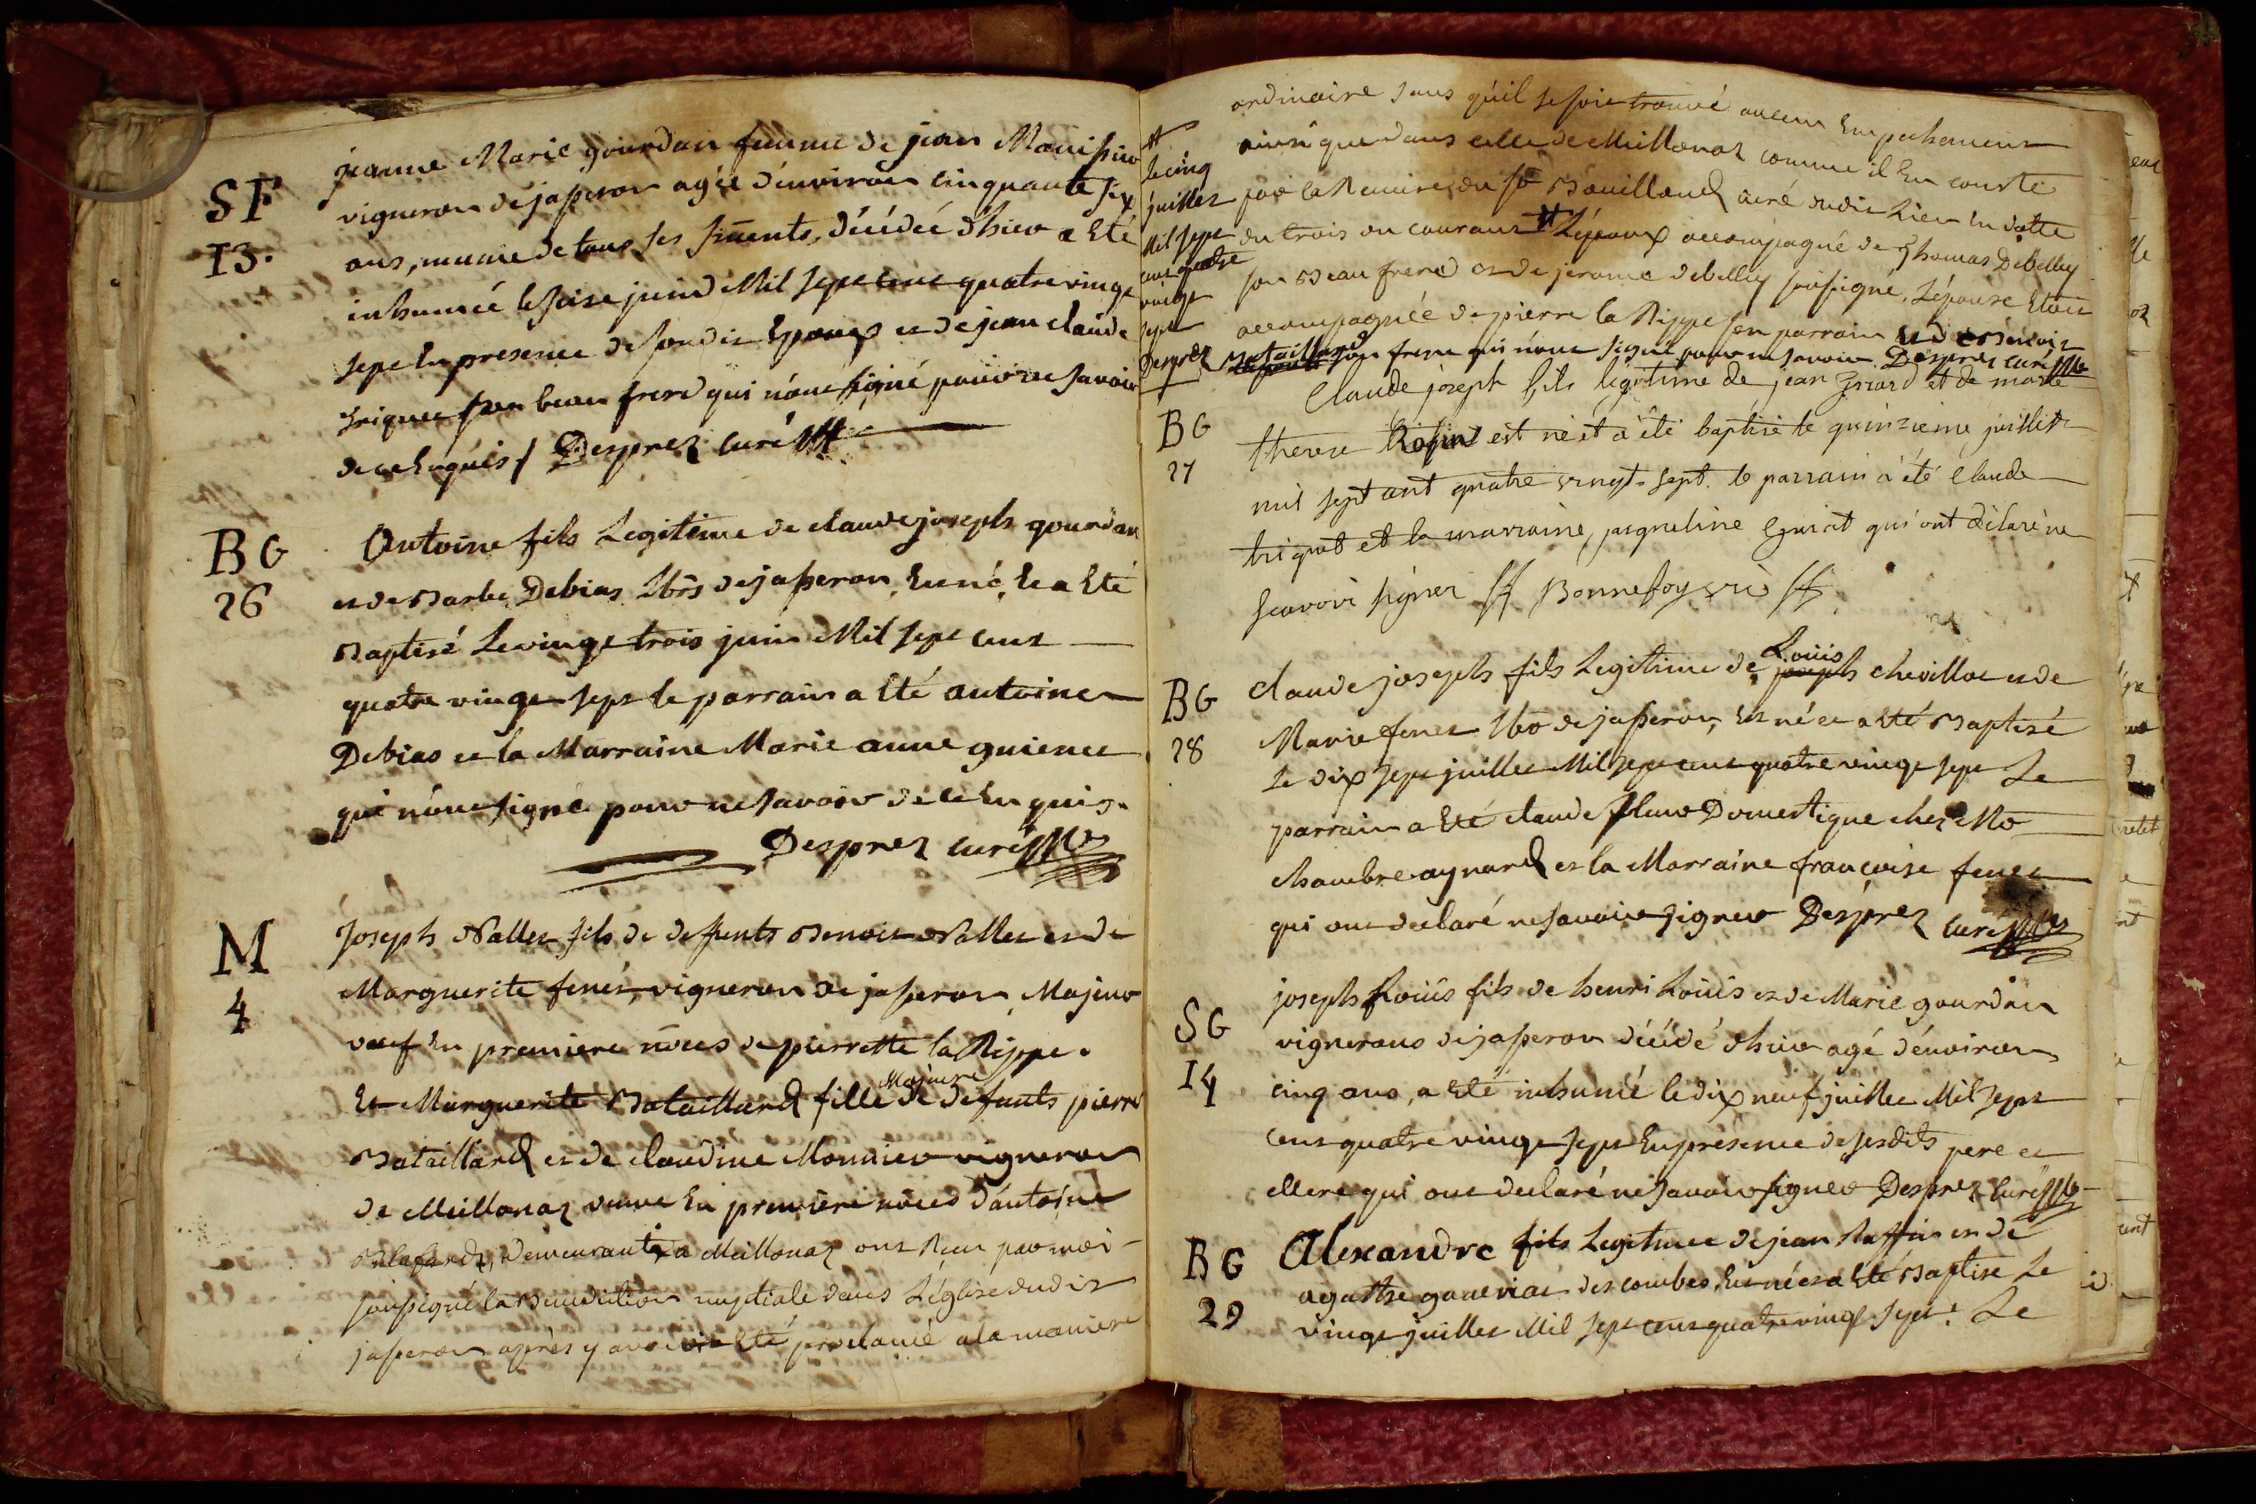 SF
13.
jeanne Marie gourdan femme de jean
vigneron de jasseron agée d'environ cinquante six
ans, munie de tous ses , décédée d'hier a Eté
inhumée le seise juin Mil sept cent quatre vingt
sept En presence de son dit Epoux et de jean claude
son beau frere qui n'ont signé pour ne savoir
de ce Enquis / Desprez curé
BG
26
Antoine fils Legitime de claude joseph gourdan
et de Barbe Debias de jasseron, Est né, Et a Eté
Baptisé Le vingt trois juin Mil sept cent
quatre vingt sept le parrain a Eté antoine
Debias et la Marraine Marie anne guienet
qui n'ont signé pour ne savoir de ce Enquis.
Desprez curé
M
4
Joseph Nallet fils de defunts Benoit Nallet et de
Marguerite fenet, vigneron de jasseron, Majeur
veuf En premiere nôces de pierrette la Rippe.
Et Marguerite Bataillard fille Majeure de defunts pierre
Bataillard et de claudine Monnier vigneron
de Meillonaz veuve En premiere nôces d'antoine
demeurante a Meillonaz ont Reçu par moi
soussigné la Benediction nuptiale dans L'église dudit
jasseron après y avoir Eté proclamé a la maniere
ordinaire sans qu'il se soit trouvé aucun Empechement
ainsi que dans celle de Meillonaz comme il En conste
par la Remise du sr Bouilloud curé dudit Lieu En datte
du trois du courant # L'époux accompagné de Thomas Debelley
son Beau frere et de jerome debelley soussigné, L'épouse Etoit
accompagnée de pierre la Rippe son parrain et de Benoit
Bataillard son frere qui n'ont signé pour ne savoir Desprez curé
#
le cinq
juillet
Mil sept
cent quatre
vingt
sept
Desprez
BG
27
Claude joseph fils légitime de jean et de marie
therese est né et a été baptisé le quinzieme juillet
mil sept cent quatre vingt-sept. le parrain a été Claude
triquet et la marraine, jaqueline qui ont déclaré ne
scavoir signer // Bonnefoy vic //
BG
28
Claude joseph fils Legitime de Louis joseph chevillot et de
Marie fenet de jasseron, Est né et a Eté Baptisé
Le dix sept juillet Mil sept cent quatre vingt sept Le
parrain a Eté claude Domestique chez Mr
chambre aynard et la Marraine françoise fenet
qui ont declaré ne savoir signer Desprez curé
SG
14
joseph Loüis fils de henri Loüis et de Marie gourdan
vignerons de jasseron décédé d'hier agé d'environ
cinq ans, a Eté inhumé le dix neuf juillet Mil sept
cent quatre vingt sept En présence de sesdits pere et
Mere qui ont declaré ne savoir signer Desprez curé
BG
29
Alexandre fils Legitime de jean Ruffin et de
agathe des combes, Est né et a Eté Baptisé Le
vingt juillet Mil sept cent quatre vingt sept. Le